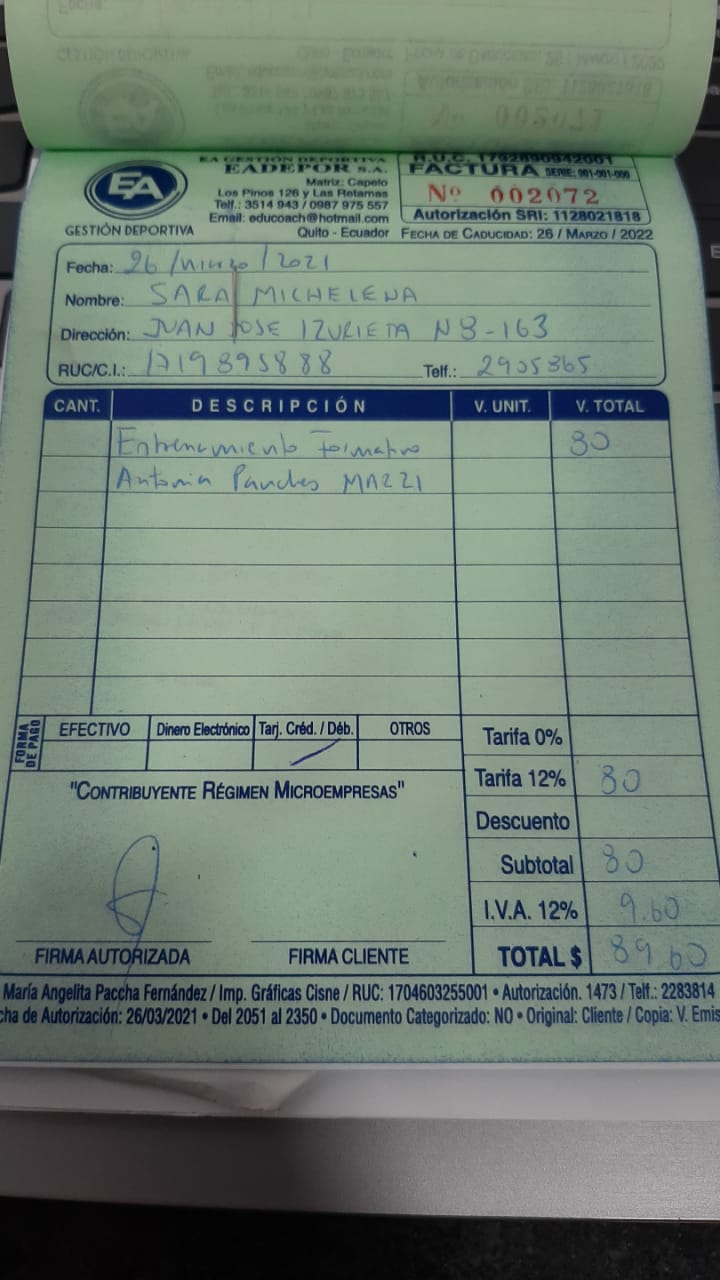 EA
GESTIÓN DEPORTIVA
EA GESTIÓN DEPORTIVA
EADEPOR S.A.
Matriz: Capelo
Los Pinos 126 y Las Retamas
Telf.: 3514 943 / 0987 975 557
Email: educoach@hotmail.com
Quito - Ecuador
R.U.C. 1792890942001
FACTURA SERIE: 001-001-000
Nº 002072
Autorización SRI: 1128021818
FECHA DE CADUCIDAD: 26 / MARZO / 2022
Fecha: 26 / marzo / 2021
Nombre: SARA MICHELENA
Dirección: JUAN JOSE IZURIETA N8-163
RUC/C.I.: 1719895888 Telf.: 2905365
CANT. DESCRIPCIÓN V. UNIT. V. TOTAL
Entrenamiento Formativo 80
Antonia MAZZI
FORMA DE PAGO
EFECTIVO Dinero Electrónico Tarj. Créd. / Déb. OTROS
"CONTRIBUYENTE RÉGIMEN MICROEMPRESAS"
Tarifa 0%
Tarifa 12% 80
Descuento
Subtotal 80
I.V.A. 12% 9.60
TOTAL $ 89.60
FIRMA AUTORIZADA FIRMA CLIENTE
María Angelita Paccha Fernández / Imp. Gráficas Cisne / RUC: 1704603255001 • Autorización. 1473 / Telf.: 2283814
cha de Autorización: 26/03/2021 • Del 2051 al 2350 • Documento Categorizado: NO • Original: Cliente / Copia: V. Emis